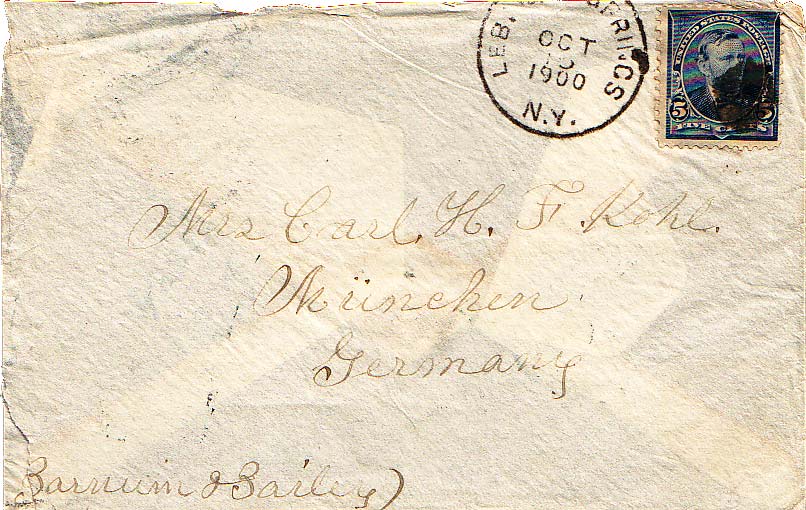 LEB. SPRINGS
OCT
1900
N.Y.
UNITED STATES POSTAGE
5 5
Mrs Carl. H. F. Kohl.
München
Germany
Barnum & Bailey)